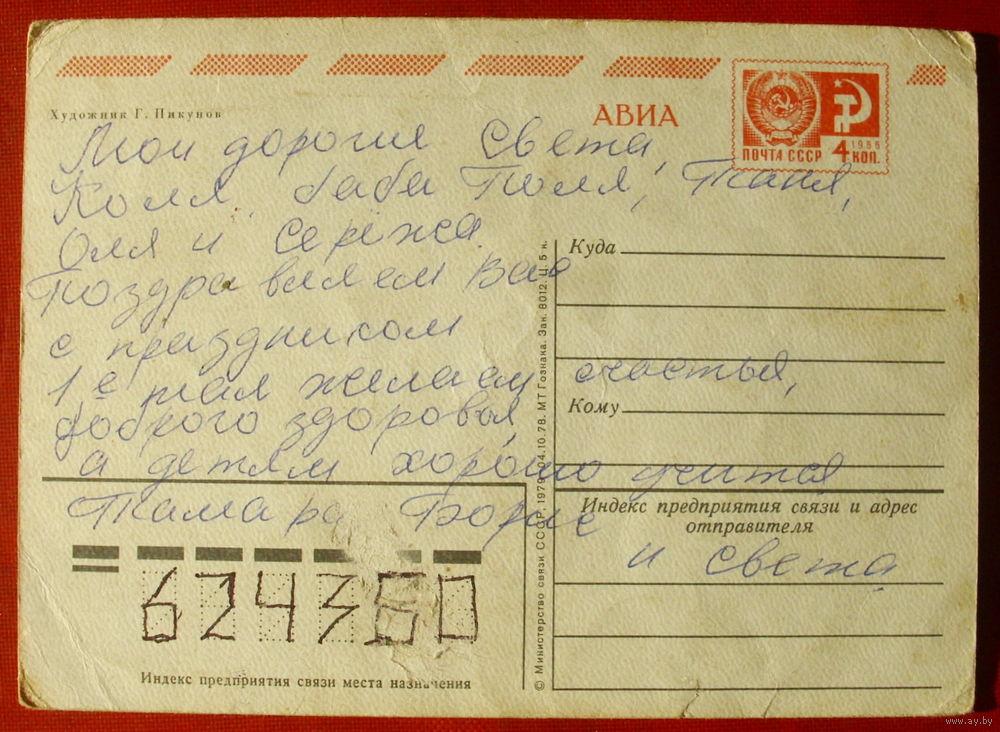 Художник Г. Пикунов
АВИА
ПОЧТА СССР 4 КОП. 1966
Мои дорогия Света,
Коля, баба Поля, Таня,
Оля и Серёжа.
Поздравляем Вас
с праздником
1 е мая желаем счастья,
доброго здоровья,
а детям хорошо учится
Тамара Борис
и Света
Куда
Кому
Индекс предприятия связи и адрес
отправителя
624350
Индекс предприятия связи места назначения
© Министерство связи СССР, 1979. 04.10.78. МТ Гознака. Зак. 8012. Ц. 5 к.
www.ay.by